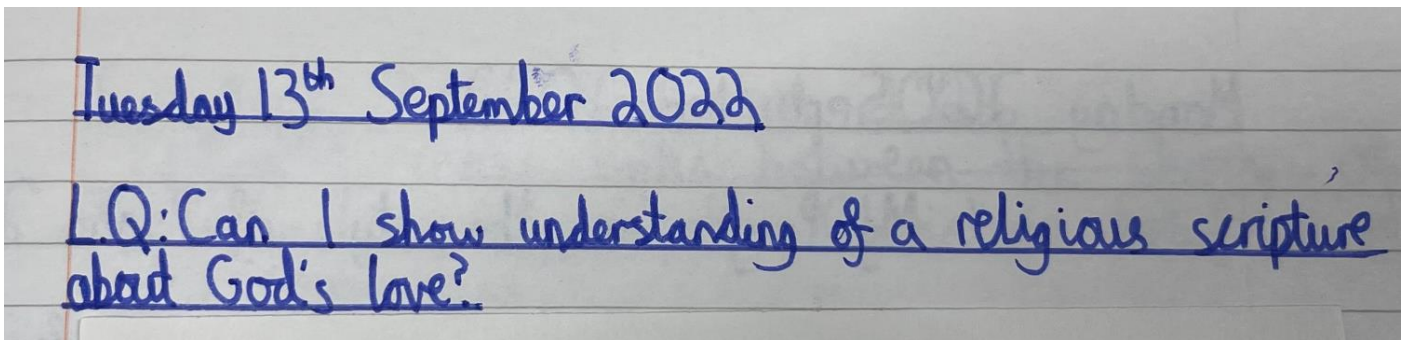 Tuesday 13th September 2022
L.Q: Can I show understanding of a religious scripture
about God's love?